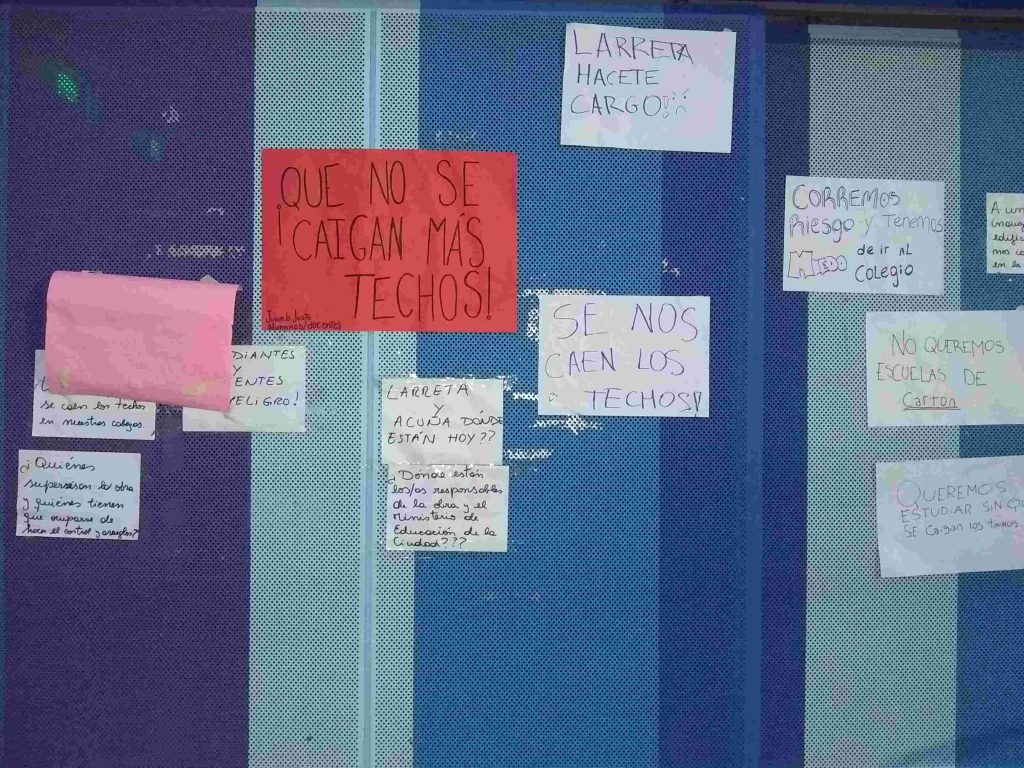 LARRETA
HACETE
CARGO!!
QUE NO SE
¡CAIGAN MÁS
TECHOS!
Juan b. Justo
alumnos/docentes
CORREMOS
Riesgo y Tenemos
MIEDO de ir AL
Colegio
A un
edific
mos c
en la
SE NOS
CAEN LOS
TECHOS!!
NO QUEREMOS
ESCUELAS DE
Cartón
DIANTES
Y
ENTES
PELIGRO!
se caen los techos
en nuestros colegios.
LARRETA
Y
ACUÑA DÓNDE
ESTÁN HOY??
¿Dónde están
los/as responsables
de la obra y el
Ministerio de
Educación de la
Ciudad???
¿Quiénes
supervisan la obra
y quiénes tienen
que ocuparse de
hacer el control y arreglos?
QUEREMOS
ESTUDIAR SIN QU
SE Caigan los techos.